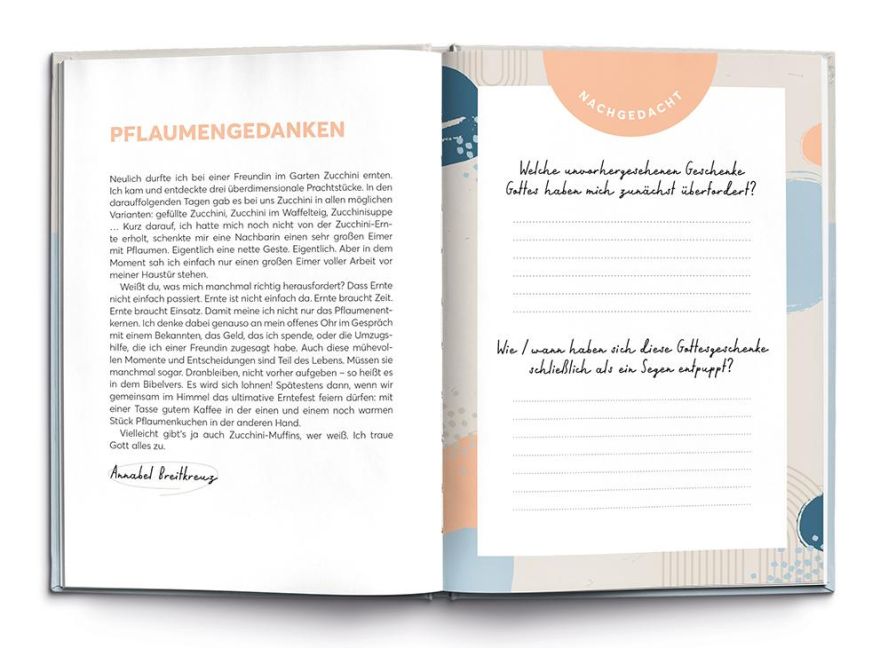 PFLAUMENGEDANKEN
Neulich durfte ich bei einer Freundin im Garten Zucchini ernten.
Ich kam und entdeckte drei überdimensionale Prachtstücke. In den
darauffolgenden Tagen gab es bei uns Zucchini in allen möglichen
Varianten: gefüllte Zucchini, Zucchini im Waffelteig, Zucchinisuppe
… Kurz darauf, ich hatte mich noch nicht von der Zucchini-Ern-
te erholt, schenkte mir eine Nachbarin einen sehr großen Eimer
mit Pflaumen. Eigentlich eine nette Geste. Eigentlich. Aber in dem
Moment sah ich einfach nur einen großen Eimer voller Arbeit vor
meiner Haustür stehen.
Weißt du, was mich manchmal richtig herausfordert? Dass Ernte
nicht einfach passiert. Ernte ist nicht einfach da. Ernte braucht Zeit.
Ernte braucht Einsatz. Damit meine ich nicht nur das Pflaumenent-
kernen. Ich denke dabei genauso an mein offenes Ohr im Gespräch
mit einem Bekannten, das Geld, das ich spende, oder die Umzugs-
hilfe, die ich einer Freundin zugesagt habe. Auch diese mühevol-
len Momente und Entscheidungen sind Teil des Lebens. Müssen sie
manchmal sogar. Dranbleiben, nicht vorher aufgeben – so heißt es
in dem Bibelvers. Es wird sich lohnen! Spätestens dann, wenn wir
gemeinsam im Himmel das ultimative Erntefest feiern dürfen: mit
einer Tasse gutem Kaffee in der einen und einem noch warmen
Stück Pflaumenkuchen in der anderen Hand.
Vielleicht gibt's ja auch Zucchini-Muffins, wer weiß. Ich traue
Gott alles zu.
Annabel Breitkreuz
NACHGEDACHT
Welche unvorhergesehenen Geschenke
Gottes haben mich zunächst überfordert?
Wie / wann haben sich diese Gottesgeschenke
schließlich als ein Segen entpuppt?